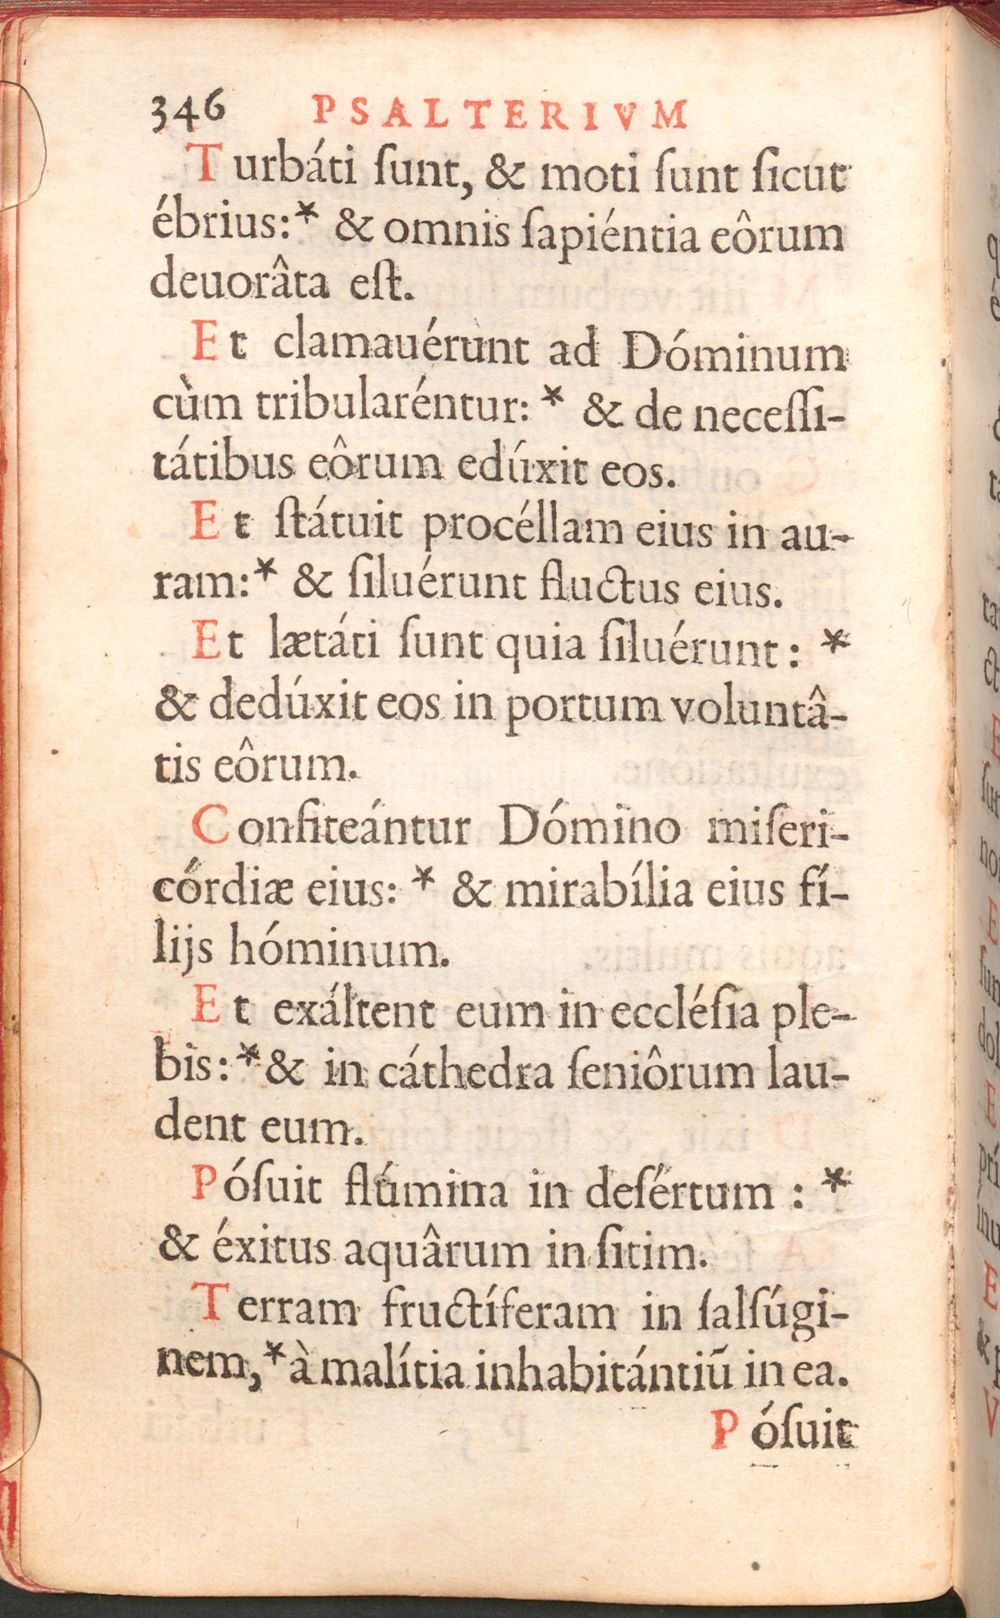 346 PSALTERIVM
Turbáti ſunt, & moti ſunt ſicut
ébrius:* & omnis ſapiéntia eôrum
deuorâta eſt.
Et clamauérunt ad Dóminum
cùm tribularéntur: * & de neceſſi-
tátibus eôrum edúxit eos.
Et ſtátuit procéllam eius in au-
ram:* & ſiluérunt fluctus eius.
Et lætáti ſunt quia ſiluérunt : *
& dedúxit eos in portum voluntâ-
tis eôrum.
Confiteántur Dómino miſeri-
córdiæ eius: * & mirabília eius fí-
lijs hóminum.
Et exáltent eum in eccléſia ple-
bis:* & in cáthedra ſeniôrum lau-
dent eum.
Póſuit flúmina in deſértum : *
& éxitus aquârum in ſitim.
Terram fructíferam in ſalſúgi-
nem,* à malítia inhabitántiū in ea.
Póſuit